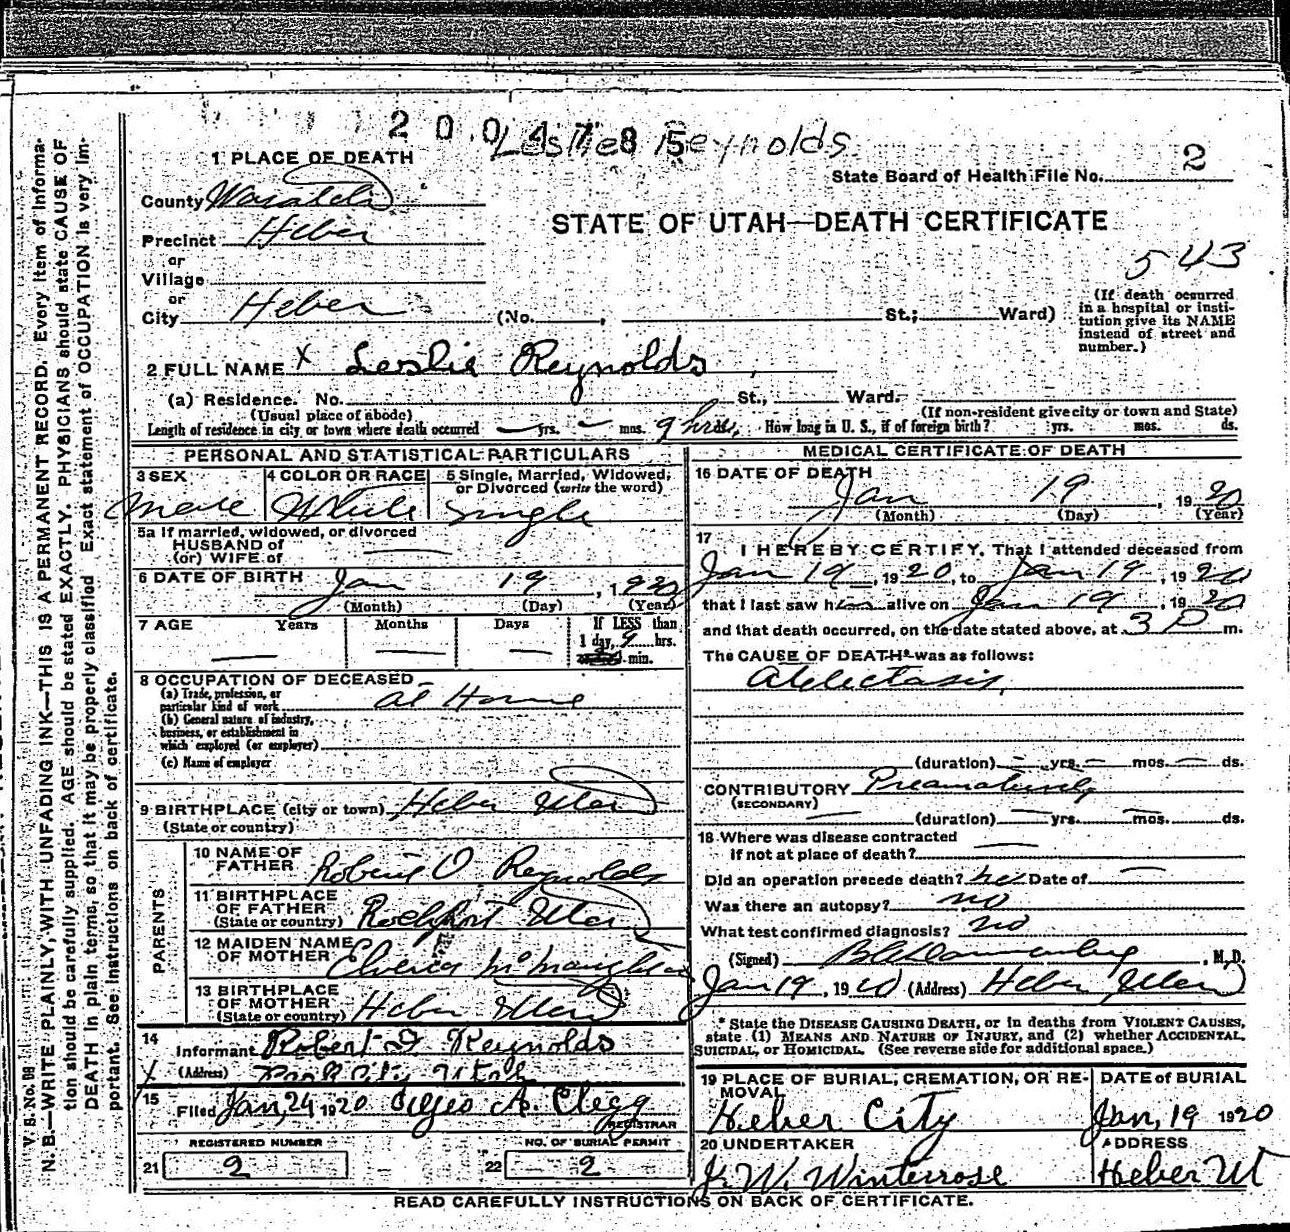 2004785
Leslie Reynolds
1 PLACE OF DEATH
State Board of Health File No. 2
County Wasatch
STATE OF UTAH—DEATH CERTIFICATE
Precinct Heber
543
or
Village
or
City Heber (No. , St.; Ward)
(If death occurred in a hospital or institution give its NAME instead of street and number.)
2 FULL NAME x Leslie Reynolds
(a) Residence. No. St., Ward.
(Usual place of abode) (If non-resident give city or town and State)
Length of residence in city or town where death occurred — yrs. — mos. 9 hrs. How long in U. S., if of foreign birth? yrs. mos. ds.
PERSONAL AND STATISTICAL PARTICULARS
3 SEX 4 COLOR OR RACE 5 Single, Married, Widowed, or Divorced (write the word)
Male White Single
5a If married, widowed, or divorced
HUSBAND of
(or) WIFE of
6 DATE OF BIRTH Jan 19, 1920
(Month) (Day) (Year)
7 AGE Years Months Days If LESS than
1 day, 9 hrs.
min.
8 OCCUPATION OF DECEASED
(a) Trade, profession, or
particular kind of work At Home
(b) General nature of industry,
business, or establishment in
which employed (or employer)
(c) Name of employer
9 BIRTHPLACE (city or town) Heber Utah
(State or country)
PARENTS
10 NAME OF
FATHER Robert O Reynolds
11 BIRTHPLACE
OF FATHER
(State or country) Rockport Utah
12 MAIDEN NAME
OF MOTHER
13 BIRTHPLACE
OF MOTHER
(State or country) Heber Utah
14
Informant Robert Reynolds
(Address) Park City Utah
15
Filed Jan, 24 1920 A. Clegg
REGISTRAR
REGISTERED NUMBER NO. OF BURIAL PERMIT
21 2 22 2
MEDICAL CERTIFICATE OF DEATH
16 DATE OF DEATH
Jan 19, 1920
(Month) (Day) (Year)
17
I HEREBY CERTIFY, That I attended deceased from
Jan 19, 1920, to Jan 19, 1920
that I last saw him alive on Jan 19, 1920
and that death occurred, on the date stated above, at 3 P m.
The CAUSE OF DEATH* was as follows:
Atelectasis
(duration) — yrs. — mos. — ds.
CONTRIBUTORY Prematurely
(SECONDARY)
(duration) — yrs. — mos. — ds.
18 Where was disease contracted
if not at place of death?
Did an operation precede death? no Date of —
Was there an autopsy? no
What test confirmed diagnosis? no
(Signed) , M. D.
Jan 19, 1920 (Address) Heber Utah
* State the DISEASE CAUSING DEATH, or in deaths from VIOLENT CAUSES,
state (1) MEANS AND NATURE OF INJURY, and (2) whether ACCIDENTAL,
SUICIDAL, or HOMICIDAL. (See reverse side for additional space.)
19 PLACE OF BURIAL, CREMATION, OR REMOVAL DATE of BURIAL
Heber City Jan, 19 1920
20 UNDERTAKER ADDRESS
J. W. Winterrose Heber Ut
READ CAREFULLY INSTRUCTIONS ON BACK OF CERTIFICATE.
N. B.—WRITE PLAINLY, WITH UNFADING INK—THIS IS A PERMANENT RECORD. Every item of information should be carefully supplied. AGE should be stated EXACTLY. PHYSICIANS should state CAUSE OF DEATH in plain terms, so that it may be properly classified. Exact statement of OCCUPATION is very important. See instructions on back of certificate.